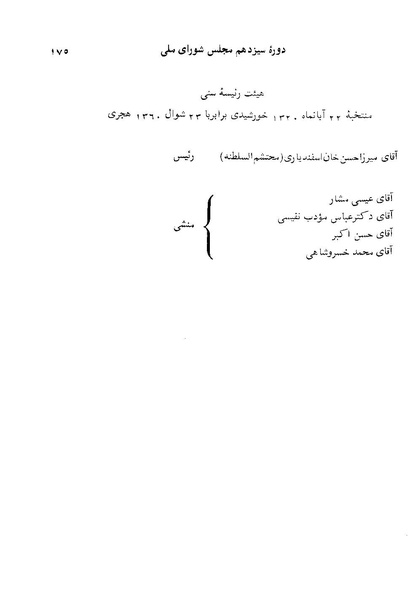 دورهٔ سیزدهم مجلس شورای ملی ۱۷۵
هیئت رئیسهٔ سنی
منتخبهٔ ۲۲ آبانماه ۱۳۲۰ خورشیدی برابر با ۲۳ شوال ۱۳۶۰ هجری
آقای میرزاحسن خان اسفندیاری (محتشم السلطنه) رئیس
آقای عیسی مشار
آقای دکترعباس مؤدب نفیسی
منشی
آقای حسن اکبر
آقای محمد خسروشاهی